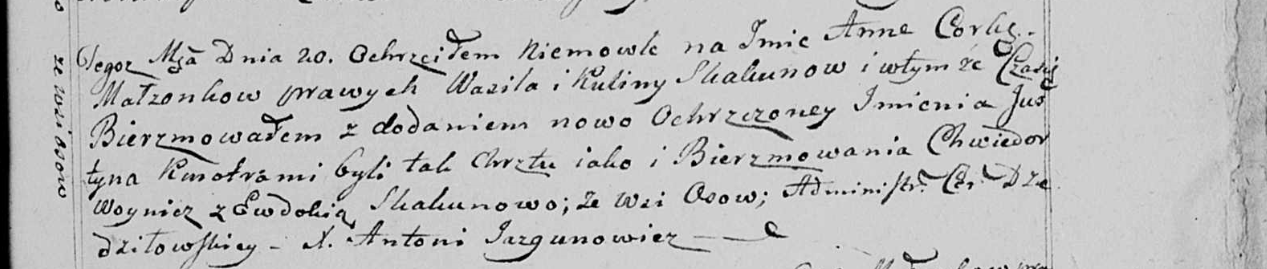 ze wsi Osow
Tegoż Mca Dnia 20. Ochrzciłem Niemowle na Imie Anne Corkę
Małzonkow prawych Wasila i Kuliny Skakunow i wtym że Czasie
Bierzmowałem z dodaniem nowo Ochrzczoney Imienia Jus
tyna Kmotrami byli tak Chrztu iako i Bierzmowania Chwiedor
Woynicz z Ewdokią Skakunowo; Ze Wsi Osow; Administr. Cer. Dze
dziłowskiey - X. Antoni Jazgunowicz